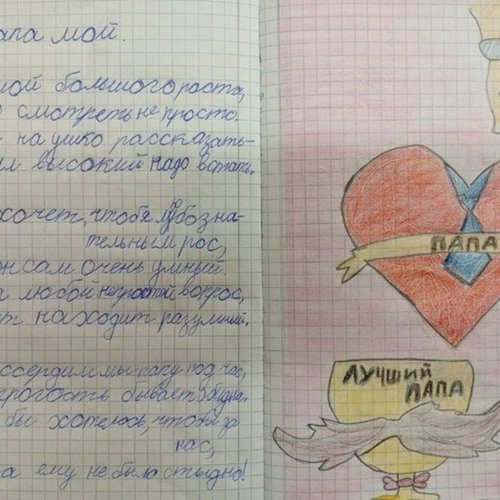 апа мой.
мой большого роста,
смотреть не просто.
на ушко рассказать-
высокий надо встать.
хочет, чтобы я любозна-
тельным рос,
сам очень умный
любой непростой вопрос,
находит разумный.
ссердим мы папу под час,
строгость бывает
бы хотелось, чтобы за
нас,
а ему не было стыдно!
ПАПА
ЛУЧШИЙ
ПАПА